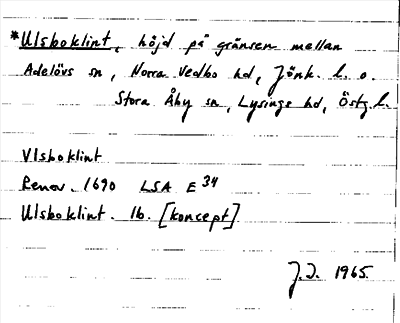 *Ulsboklint, höjd på gränsen mellan
Adelövs sn, Norra Vedbo hd, Jönk. l. o.
Stora Åby sn, Lysings hd, Östg. l.
Vlsboklint
Renov. 1690 LSA E 34
Ulsboklint. Ib. [koncept]
J.I. 1965.